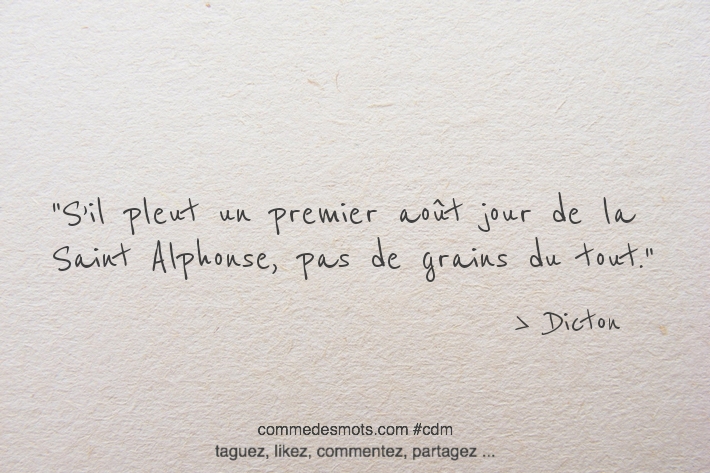 "S'il pleut un premier août jour de la
Saint Alphonse, pas de grains du tout."
> Dicton
commedesmots.com #cdm
taguez, likez, commentez, partagez ...